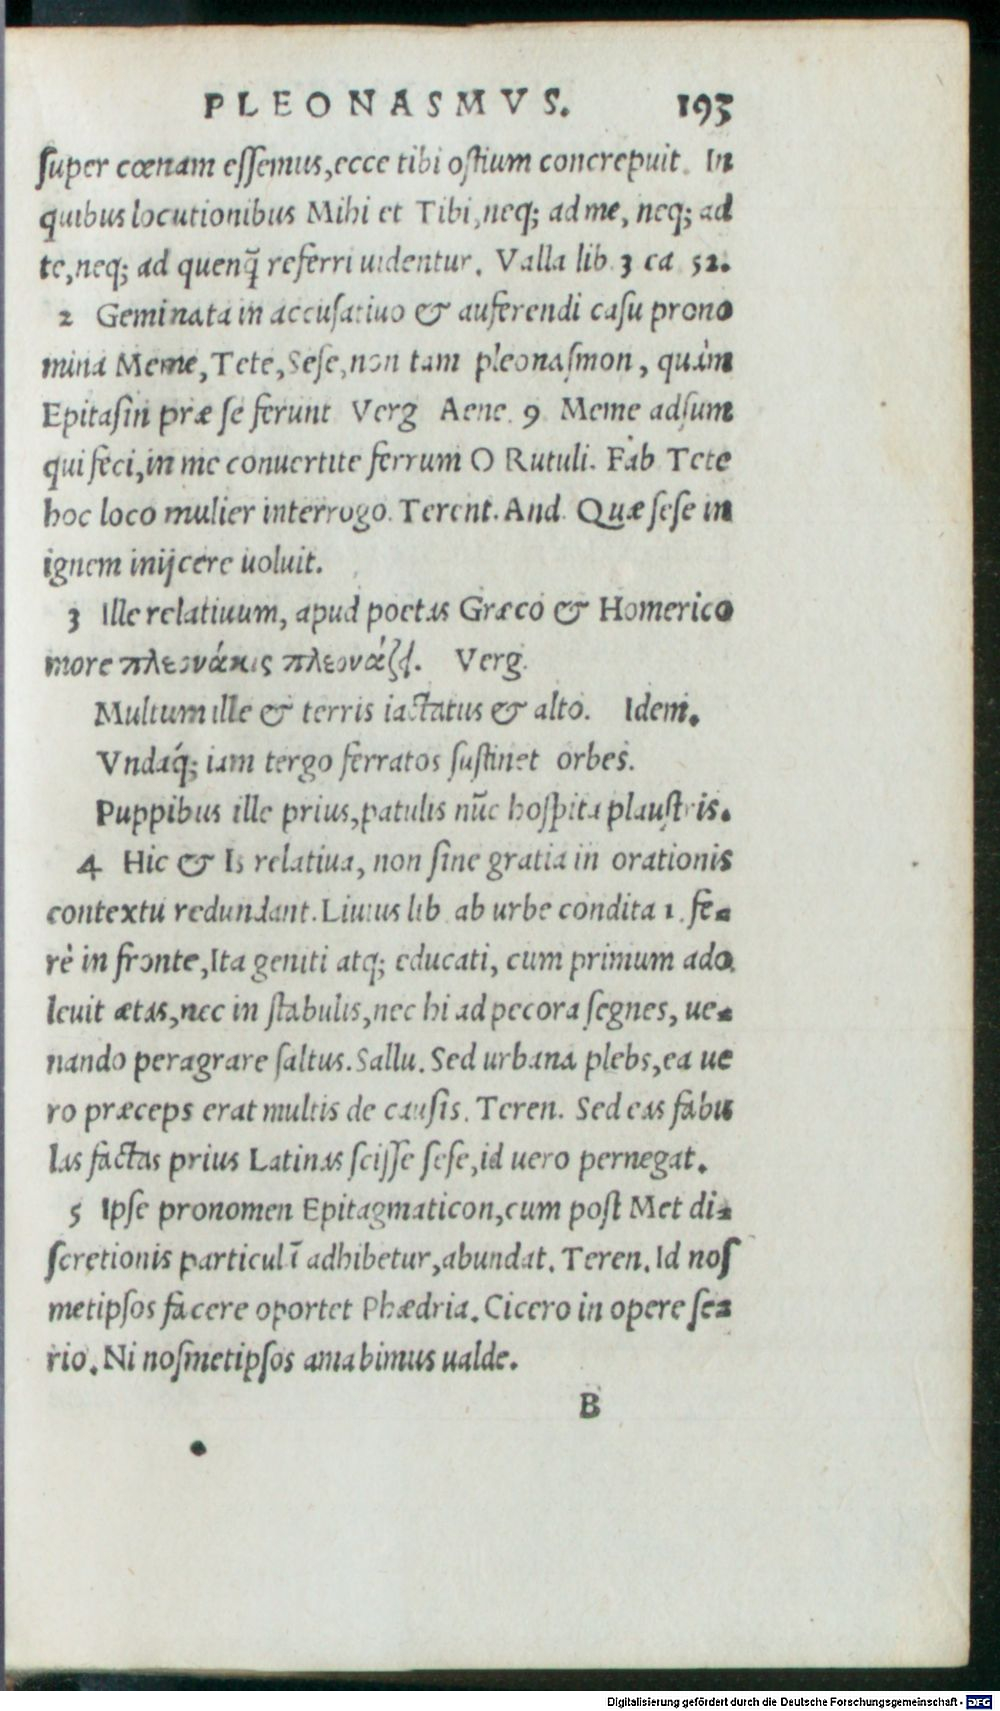 PLEONASMVS. 193
ſuper cœnam eſſemus, ecce tibi oſtium concrepuit. In
quibus locutionibus Mihi et Tibi, neq; ad me, neq; ad
te, neq; ad quenq̃ referri uidentur. Valla lib. 3 ca 52.
2 Geminata in accuſatiuo & auferendi caſu prono
mina Meme, Tete, Seſe, non tam pleonaſmon, quàm
Epitaſin præ ſe ferunt Verg Aene. 9 Meme adſum
qui feci, in me conuertite ferrum O Rutuli. Fab Tete
hoc loco mulier interrogo. Terent. And. Quæ ſeſe in
ignem inijcere uoluit.
3 Ille relatiuum, apud poetas Græco & Homerico
more πλεονάκις πλεονάζει. Verg.
Multum ille & terris iactatus & alto. Idem.
Vndaq́; iam tergo ferratos ſuſtinet orbes.
Puppibus ille prius, patulis nũc hoſpita plauſtris.
4 Hic & Is relatiua, non ſine gratia in orationis
contextu redundant. Liuius lib ab urbe condita 1. fe-
rè in fronte, Ita geniti atq; educati, cum primum ado
leuit ætas, nec in ſtabulis, nec hi ad pecora ſegnes, ue-
nando peragrare ſaltus. Sallu. Sed urbana plebs, ea ue
ro præceps erat multis de cauſis. Teren. Sed eas fabu
las factas prius Latinas ſciſſe ſeſe, id uero pernegat.
5 Ipſe pronomen Epitagmaticon, cum poſt Met di-
ſcretionis particulā adhibetur, abundat. Teren. Id noſ
metipſos facere oportet Phædria. Cicero in opere ſe-
rio. Ni noſmetipſos amabimus ualde.
B
Digitalisierung gefördert durch die Deutsche Forschungsgemeinschaft - DFG